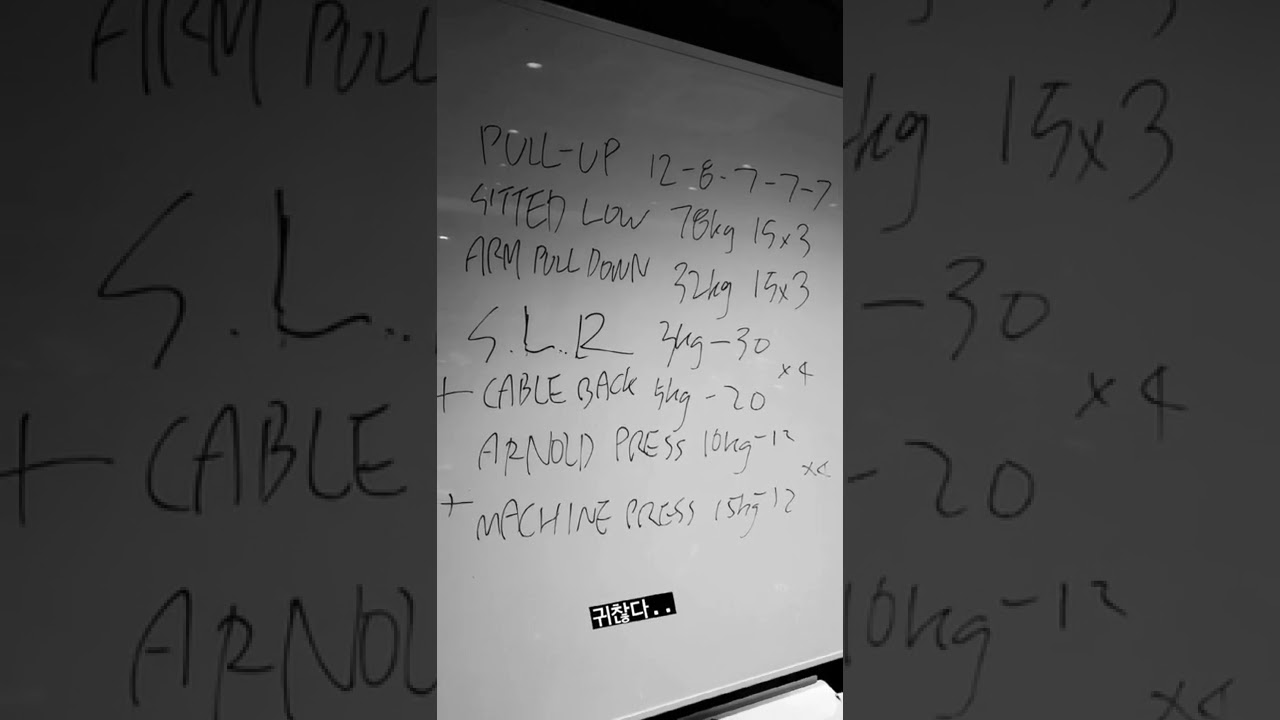 PULL-UP 12-8-7-7-7
SITTED LOW 78kg 15x3
ARM PULL DOWN 32kg 15x3
S.L..R 3kg-30
+ CABLE BACK 5kg-20 x4
ARNOLD PRESS 10kg-12
+ MACHINE PRESS 15kg-12 x4
귀찮다..